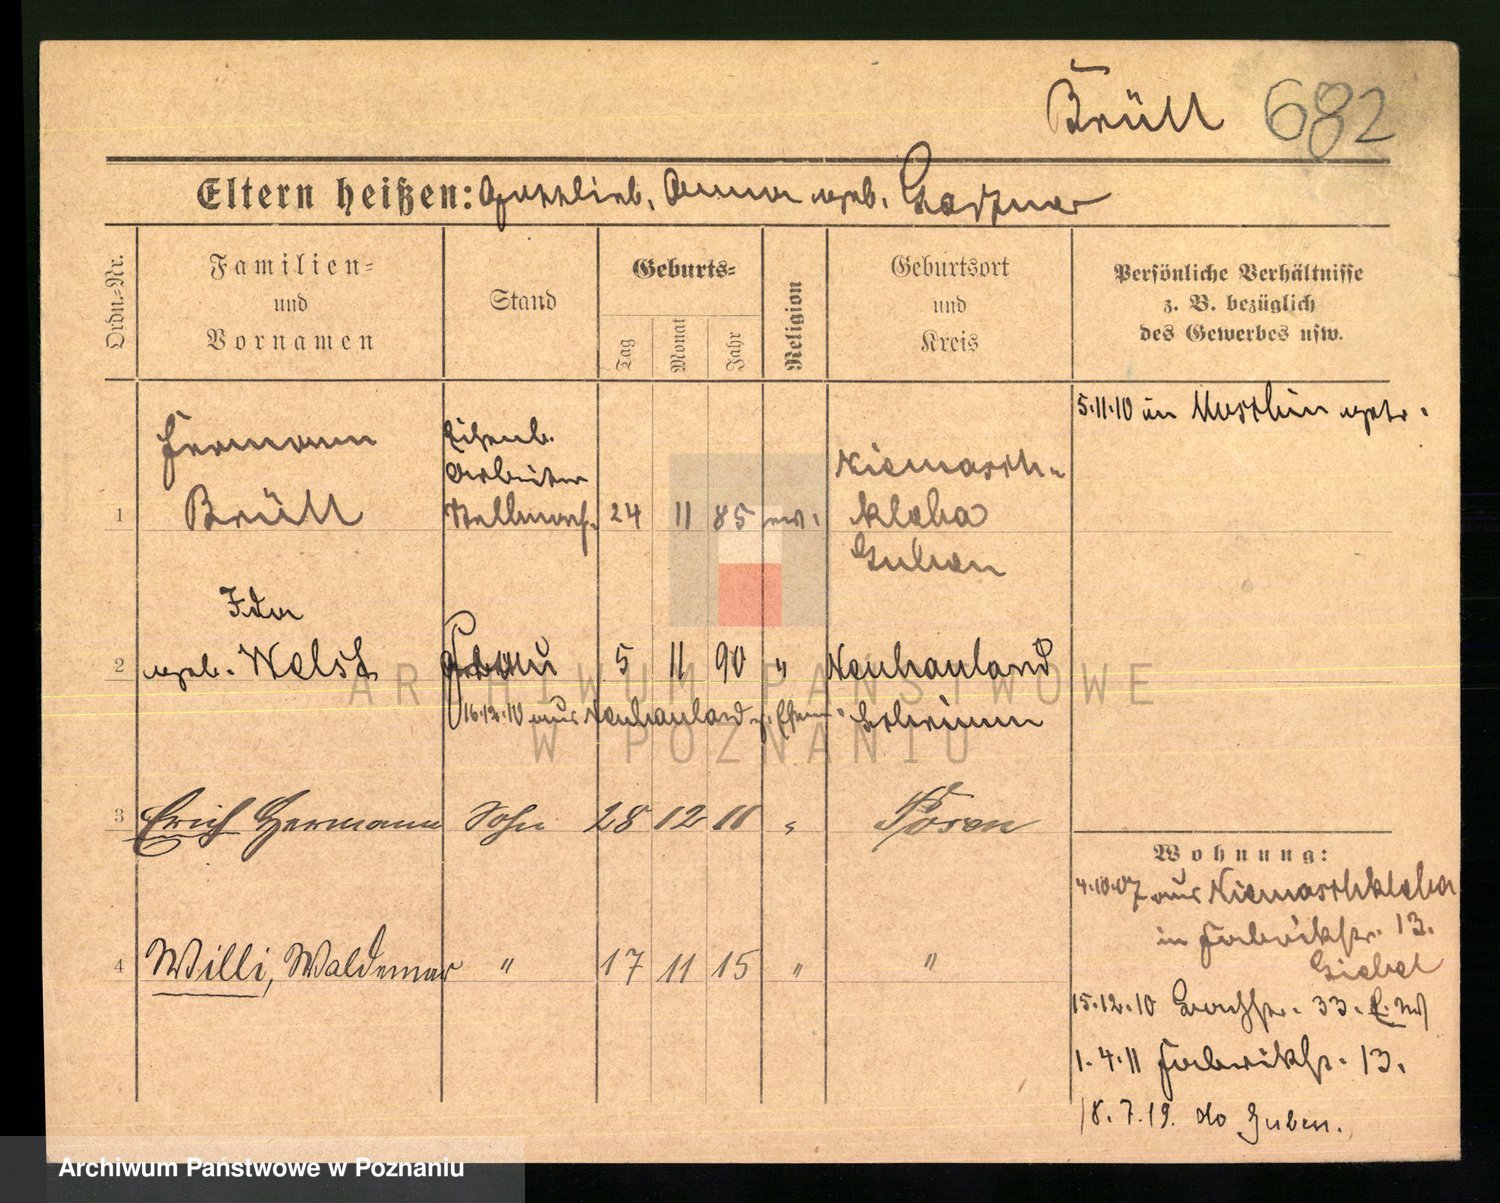 Brüll 682
Eltern heißen: Gottlieb, Anna geb.
Ordn.-Nr.
Familien-
und
Vornamen
Stand
Geburts-
Tag
Monat
Jahr
Religion
Geburtsort
und
Kreis
Persönliche Verhältnisse
z. B. bezüglich
des Gewerbes usw.
5.11.10 in
Hermann
Brüll
Eisenb.
Arbeiter
1 24 11 85 ev.
Niemasch-
kleba
Guben
Ida
2 geb. Frau 5 11 90 " Neuhauland
16.12.10 aus Neuhauland Schrimm
3 Erich Hermann Sohn 28 12 11 " Posen
4 Willi, Waldemar " 17 11 15 " "
Wohnung:
4.10.07 aus Niemaschkleba
in Fabrikstr. 13.
Giebel
15.12.10 33.
1.4.11 Fabrikstr. 13.
18.7.19. do Guben.
ARCHIWUM PAŃSTWOWE
W POZNANIU
Archiwum Państwowe w Poznaniu